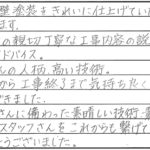 壁塗装をきれいに仕上げていた
ます。
の親切丁寧な工事内容の説
ドバイス。
んの人柄、高い技術。
から工事終了まで気持ち良く
できました。
んに備わった素晴しい技術・
スタッフさんをこれからも繋げて
とうございました。